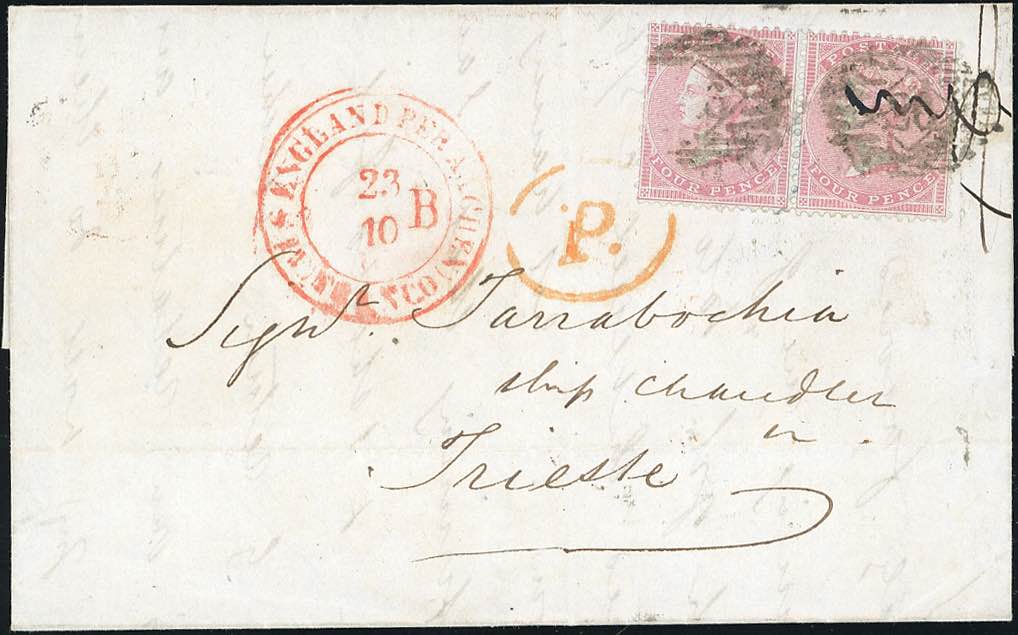 POSTAGE
FOUR PENCE
FOUR PENCE
ENGLAND PER AACHEN FRANCO
23
10
B
P.
Signr. Tarrabochia
ship chandler
in
Trieste